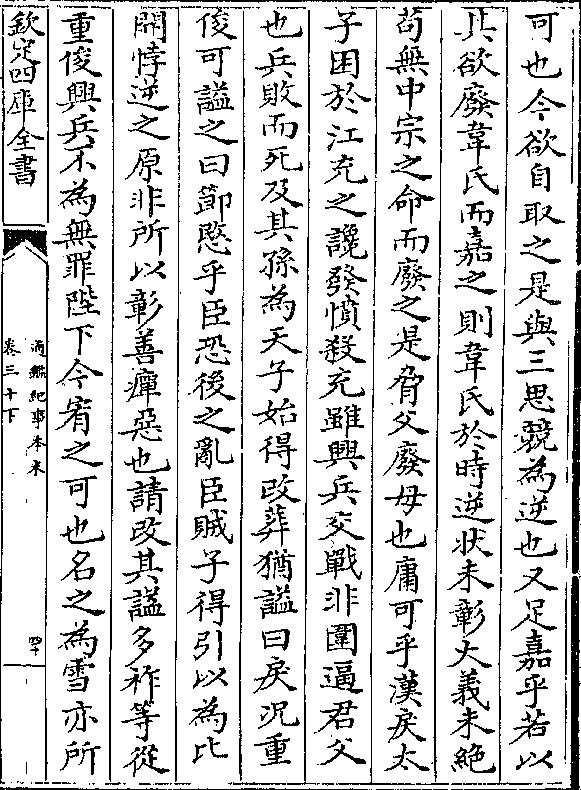 可也今欲自取之是與三思競為逆也又足嘉乎若以
其欲廢韋氏而嘉之則韋氏於時逆状未彰大義未絶
苟無中宗之命而廢之是脅父廢母也庸可乎漢戾太
子困於江充之讒發憤殺充雖興兵交戰非圍逼君父
也兵敗而死及其孫為天子始得改葬猶謚曰戾况重
俊可謚之曰節愍乎臣恐後之亂臣賊子得引以為比
開悖逆之原非所以彰善癉惡也請改其謚多祚等從
重俊興兵不為無罪陛下今宥之可也名之為雪亦所
欽定四庫全書
通鑑紀事本末
卷三十下
四十